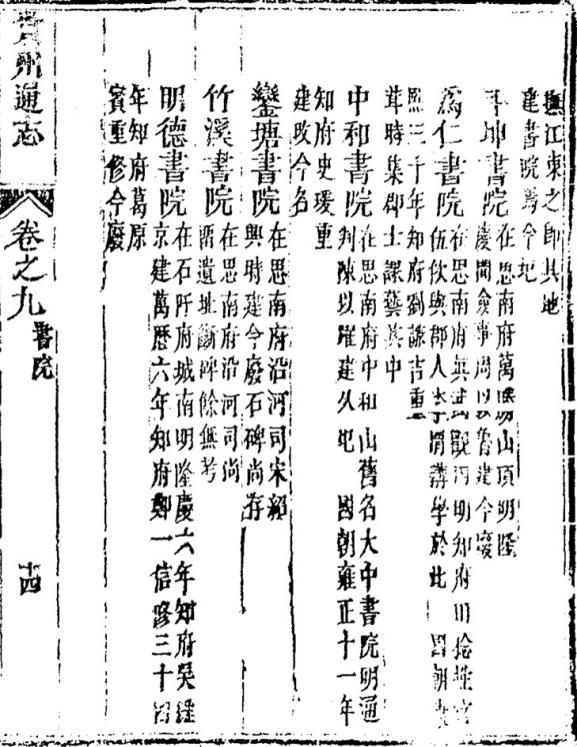 撫江東之卽其地
建書院焉今圮
斗坤書院
在思南府萬勝山頂明隆
慶間僉事周以魯建今廢
為仁書院
在思南府真武觀內明知府田稔
伍佽與郡人李渭講學於此 國朝康
熙三十年知府劉謙吉重
葺時集郡士課藝其中
中和書院
在思南府中和山舊名大中書院明通
判陳以躍建久圮 國朝雍正十一年
知府史瑗重
建改今名
鑾塘書院
在思南府沿河司宋紹
興時建今廢石碑尚存
竹溪書院
在思南府沿河司尚
遺址斷碑餘無考
明德書院
在石阡府城南明隆慶六年知府吳維
京建萬曆六年知府鄭一信修三十四
年知府葛原
賓重修今廢
貴州通志
卷之九
書院
十四